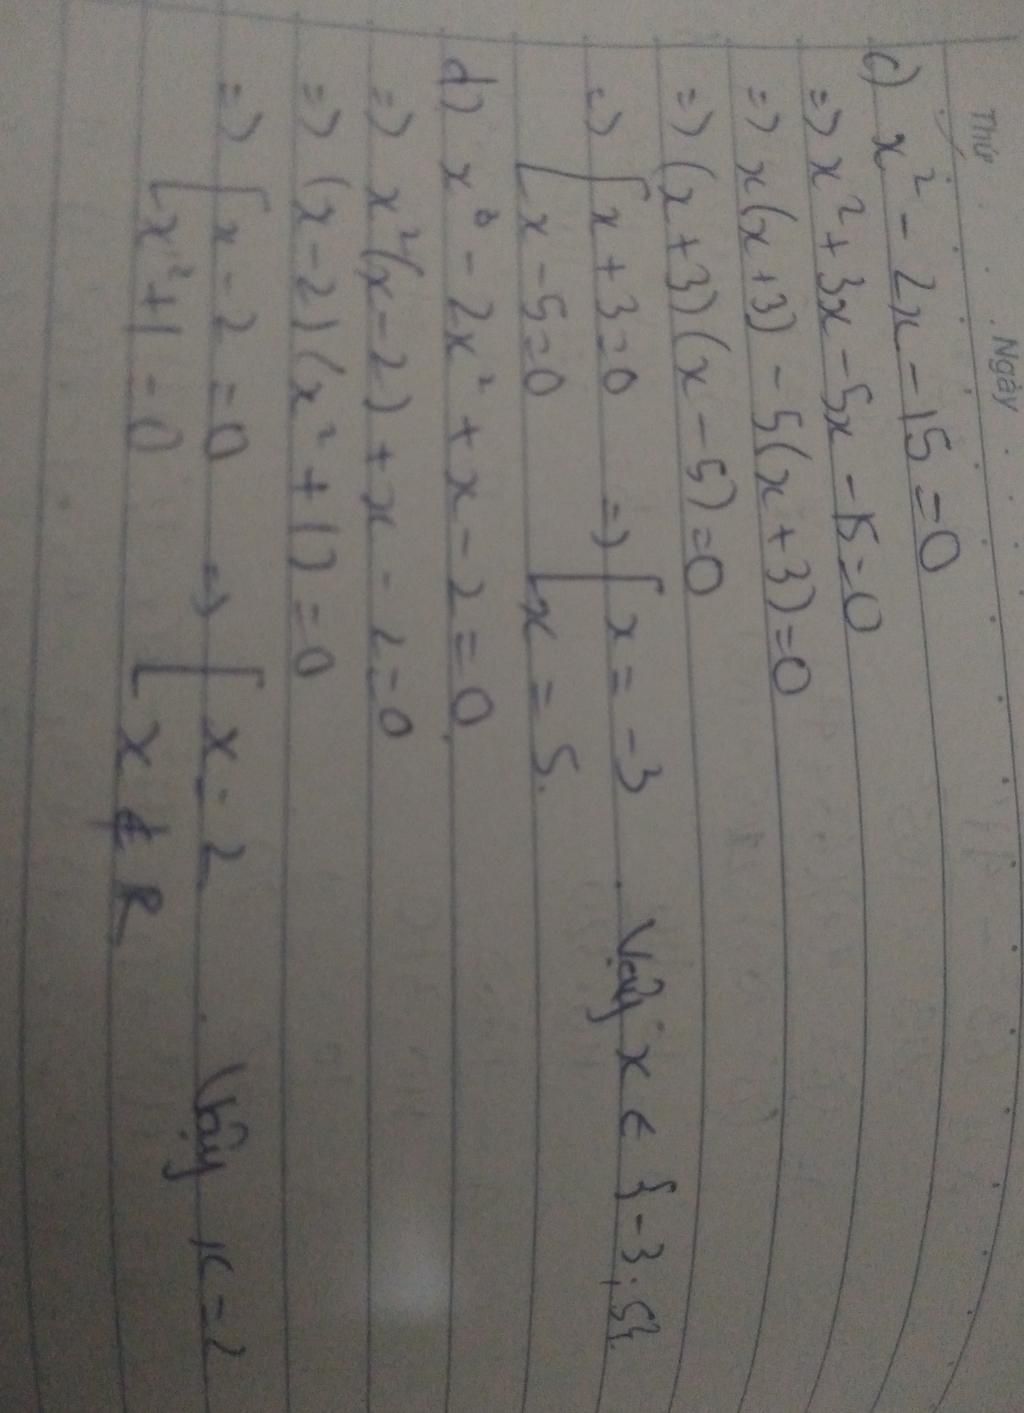 Thứ
Ngày
c) x² - 2x - 15 = 0
=> x² + 3x - 5x - 15 = 0
=> x(x + 3) - 5(x + 3) = 0
=> (x + 3)(x - 5) = 0
=> [ x + 3 = 0 => [ x = -3 . Vậy x ∈ {-3; 5}
[ x - 5 = 0 [ x = 5.
d) x³ - 2x² + x - 2 = 0
=> x²(x - 2) + x - 2 = 0
=> (x - 2)(x² + 1) = 0
=> [ x - 2 = 0 => [ x = 2 . Vậy x = 2
[ x² + 1 = 0 [ x ∉ R